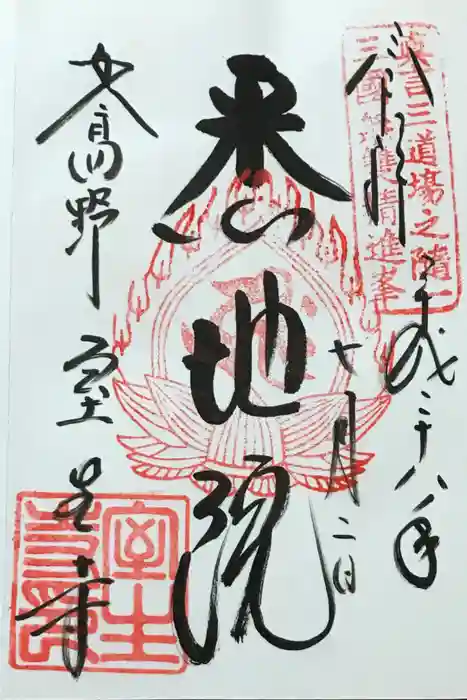 真言三道場之隨一
三國無雙精進峯
奉拝 平成二十八年
月二日
悉地院
女高野 室生寺
室生